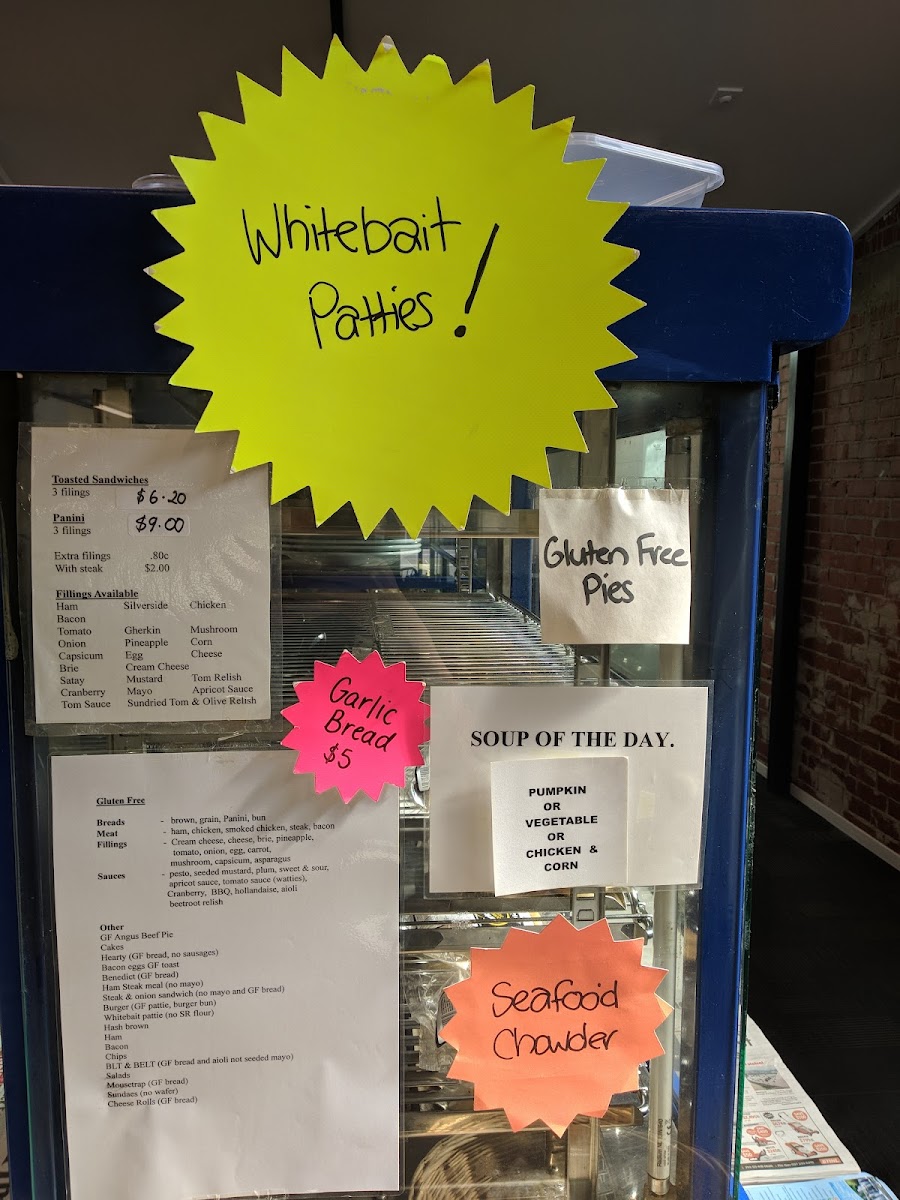 Whitebait
Patties !
Toasted Sandwiches
3 filings $6.20
Panini $9.00
3 filings
Extra filings .80c
With steak $2.00
Fillings Available
Ham Silverside Chicken
Bacon
Tomato Gherkin Mushroom
Onion Pineapple Corn
Capsicum Egg Cheese
Brie Cream Cheese
Satay Mustard Tom Relish
Cranberry Mayo Apricot Sauce
Tom Sauce Sundried Tom & Olive Relish
Gluten Free
Pies
Garlic
Bread
$5
SOUP OF THE DAY.
PUMPKIN
OR
VEGETABLE
OR
CHICKEN &
CORN
Gluten Free
Breads - brown, grain, Panini, bun
Meat - ham, chicken, smoked chicken, steak, bacon
Fillings - Cream cheese, cheese, brie, pineapple,
tomato, onion, egg, carrot,
mushroom, capsicum, asparagus
Sauces - pesto, seeded mustard, plum, sweet & sour,
apricot sauce, tomato sauce (watties),
Cranberry, BBQ, hollandaise, aioli
beetroot relish
Other
GF Angus Beef Pie
Cakes
Hearty (GF bread, no sausages)
Bacon eggs GF toast
Benedict (GF bread)
Ham Steak meal (no mayo)
Steak & onion sandwich (no mayo and GF bread)
Burger (GF pattie, burger bun)
Whitebait pattie (no SR flour)
Hash brown
Ham
Bacon
Chips
BLT & BELT (GF bread and aioli not seeded mayo)
Salads
Mousetrap (GF bread)
Sundaes (no wafer)
Cheese Rolls (GF bread)
Seafood
Chowder